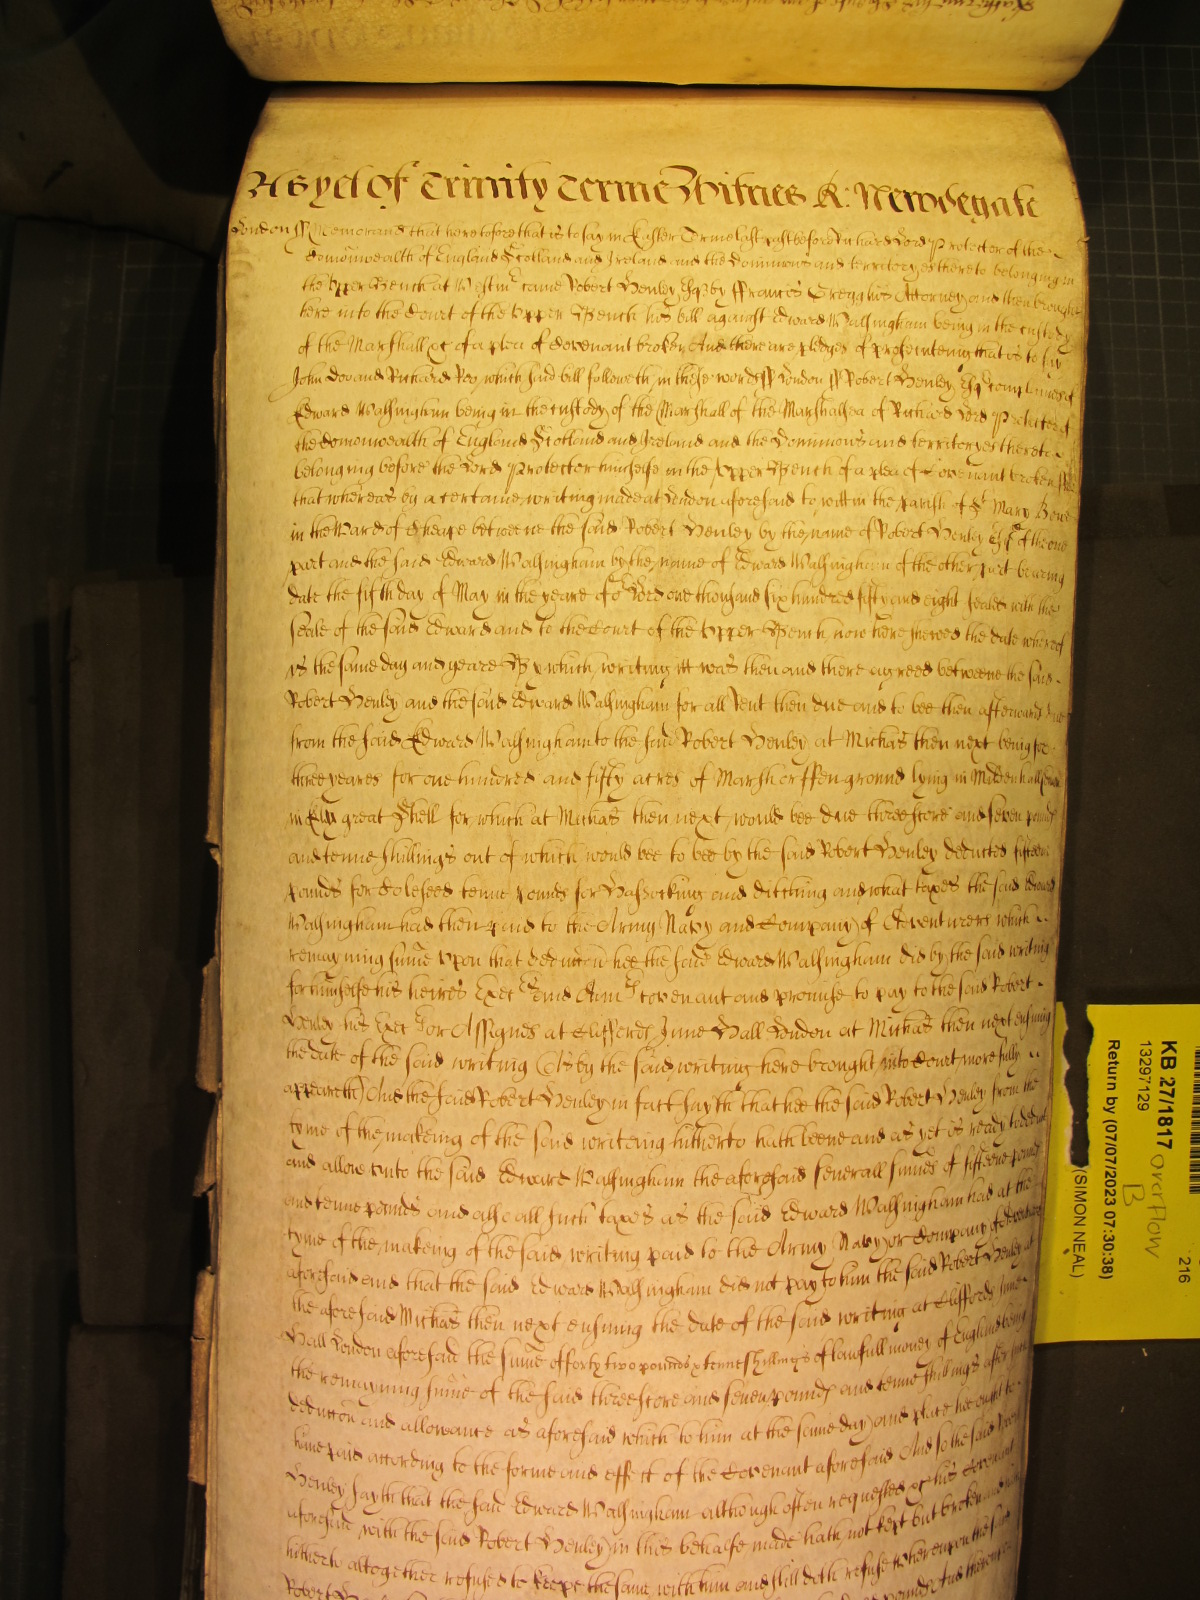 As yet of Trinity Terme Witnes R: Newdegate
London ss Memorand that heretofore that is to say in Easter Terme last past before Richard Lord Protector of the
Comonwealth of England Scotland and Ireland and the Dominions and territoryes thereto belonging in
the Upper Bench at Westmr came Robert Henley Esqr by ffrancis Gregg his Attorney and then brought
here into the Court of the Upper Bench his bill against Edward Walsingham being in the custody
of the Marshall &c of a plea of Covenant broken And there are pledges of prosecuteing that is to say
John Doo and Richard Roo which said bill followeth in these words ss London ss Robert Henley Esqr complaines of
Edward Walsingham being in the custody of the Marshall of the Marshalsea of Richard Lord Protector of
the Comonwealth of England Scotland and Ireland and the Dominions and territoryes thereto
belonging before the Lord Protector himselfe in the Upper Bench of a plea of Covenant broken
that whereas by a certaine writing made at London aforesaid to witt in the parish of St Mary Bowe
in the Ward of Cheape betweene the said Robert Henley by the name of Robert Henley Esqr of the one
part and the said Edward Walsingham by the name of Edward Walsingham of the other part bearing
date the fifth day of May in the yeare of or Lord one thousand six hundred fifty and eight sealed with the
seale of the said Edward and to the Court of the Upper Bench now here shewed the date whereof
is the same day and yeare By which writing itt was then and there agreed betweene the said
Robert Henley and the said Edward Walsingham for all Rent then due and to bee then afterwards due
from the said Edward Walsingham to the said Robert Henley at Michas then next being for
three yeares for one hundred and fifty acres of Marsh or ffen ground lying in Mildenhall
in great Shell for which at Michas then next would bee due threescore and seven pounds
and tenne shillings out of which would bee to bee by the said Robert Henley deducted fifteene
pounds for Coleseed tenne pounds for Hassocking and ditching and what taxes the said Edward
Walsingham had then paid to the Army Navy and Company of Adventurers which
remayning sume upon that deduccon hee the said Edward Walsingham did by the said writing
for himselfe his heires Execrs and Admrs covenant and promise to pay to the said Robert
Henley his Execrs or Assignes at Cliffords Inne Hall London at Michas then next ensuing
the date of the said writing (As by the said writing here brought into Court more fully
appeareth) And the said Robert Henley in fact sayth that hee the said Robert Henley from the
tyme of the makeing of the said writeing hitherto hath beene and as yet is ready to deduct
and allow unto the said Edward Walsingham the aforesaid severall sumes of fifteene pounds
and tenne pounds and alsoe all such taxes as the said Edward Walsingham had at the
tyme of the makeing of the said writing paid to the Army Navy or Company of Adventurers
aforesaid and that the said Edward Walsingham did not pay to him the said Robert Henley at
the aforesaid Michas then next ensuing the date of the said writing at Cliffords Inne
Hall London aforesaid the sume of forty two pounds & tenne shillings of lawfull money of England being
the remayning sume of the said threescore and seven pounds and tenne shillings after such
deduccon and allowance as aforesaid which to him at the same day and place hee ought to
have paid according to the forme and effect of the Covenant aforesaid And so the said Robert
Henley sayth that the said Edward Walsingham although often requested &c his Covenant
aforesaid with the said Robert Henley in this behalfe made hath not kept but broken and
hitherto altogether refused to keepe the same with him and still doth refuse Whereupon the said
Robert
KB 27/1817 overflow B
13297129
Return by (07/07/2023 07:30:38)
(SIMON NEAL)
216